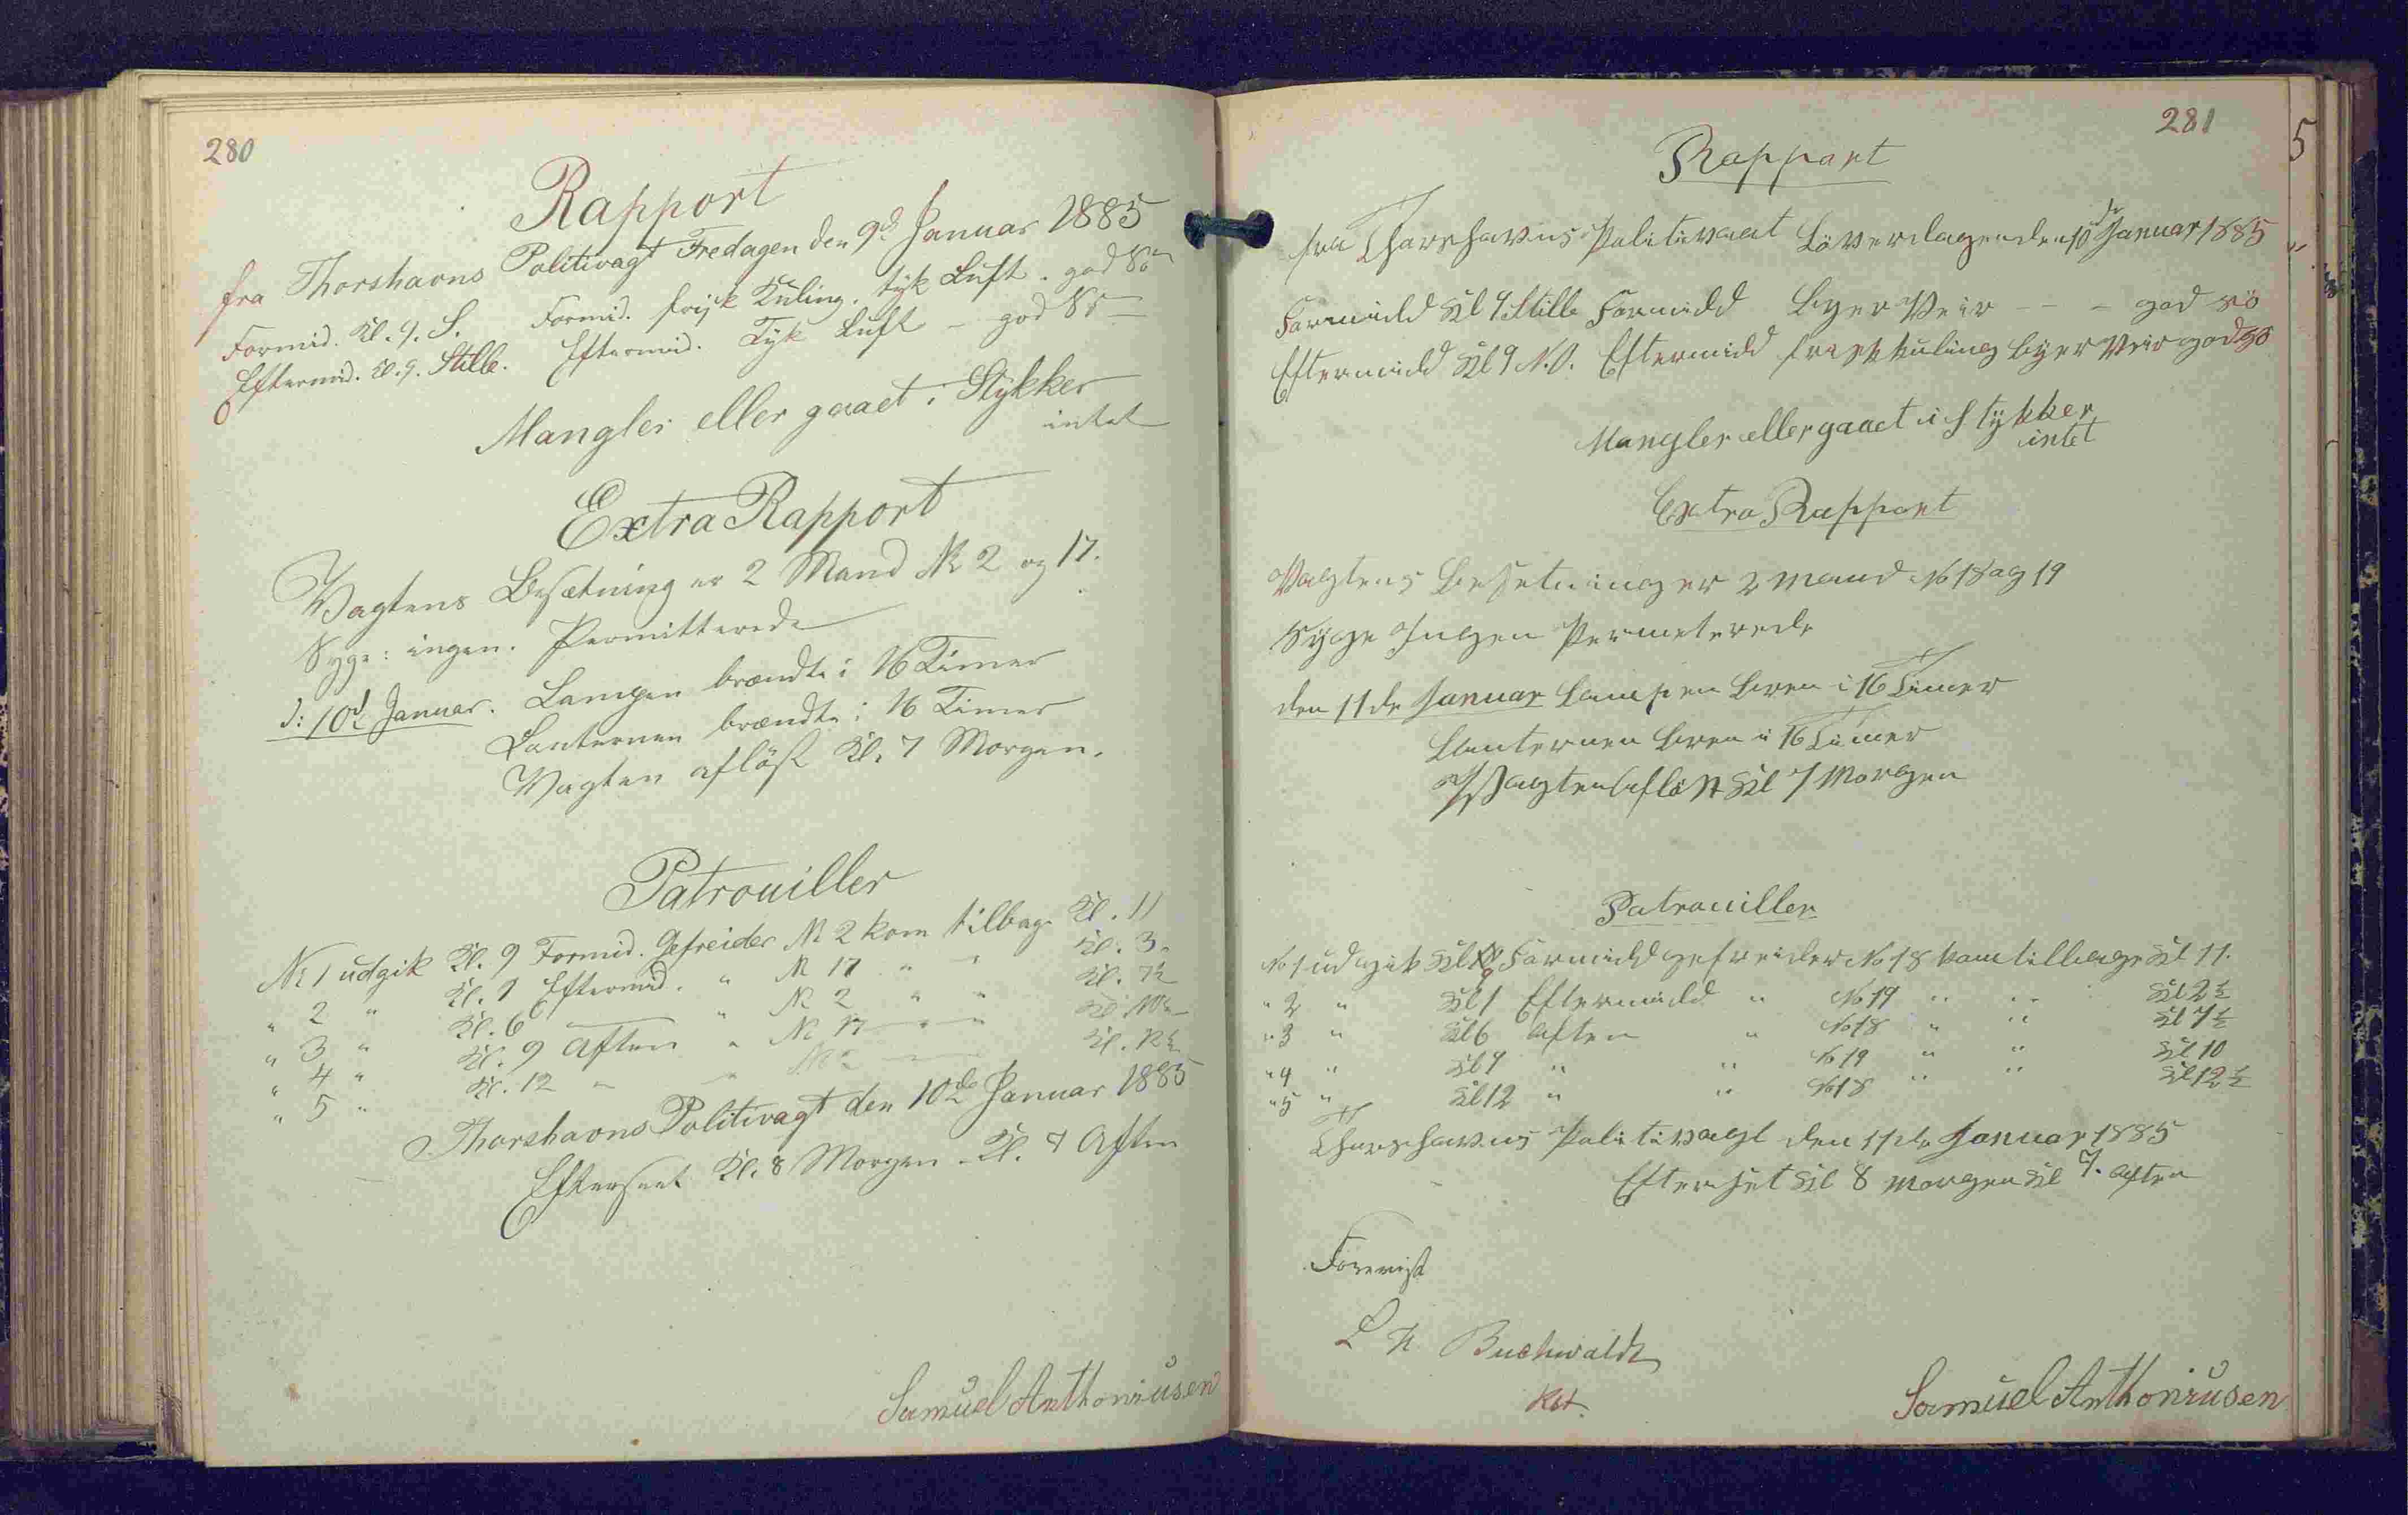 280
Rapport
fra Thorshavns Politivagt Fredagen den 9d Januar 1885
Formid. Kl. 9. S. Formid. frisk Kuling. tyk Luft. god Sö
Eftermid. Kl. 9. Stille. Eftermid. Tyk Luft – god Sö –
Mangler eller gaaet i Stykker
intet
Extra Rapport
Vagtens Besætning er 2 Mand № 2 og 17.
Syge: ingen. Permitterede
d: 10d Januar. Lampen brændte i 16 Timer
Lanternen brændte i 16 Timer
Vagten aflöst Kl. 7 Morgen.
Patrouiller
№ 1 udgik Kl. 9 Formid. Gefreider № 2 kom tilbage Kl. 11
" 2 " Kl. 1 Eftermid. " № 17 " " Kl. 3 "
" 3 " Kl. 6 — " № 2 " " Kl. 7½
" 4 " Kl. 9 Aften " № 17 " " Kl.
" 5 " Kl. 12 – " Kl. 12½
Thorshavns Politivagt den 10de Januar 1885
Efterseet Kl. 8 Morgen – Kl. 7 Aften
Samuel Anthoniusen
281
5
Rapport
fra Thorshavns Politivact Löverdagen den 10de Januar 1885
Formidd Kl 9 Stille Formidd Byer Veir – – – god sö
Eftermidd Kl 9 N.O. Eftermidd frisk kuling Byer Veir god sö
Mangler eller gaaet i Stykker
intet
Extra Rapport
Vagtens Besetning er 2 mand № 18 og 19
Syge Ingen Permeterede
den 11de Januar Lampen bren i 16 Timer
Lanternen bren i 16 Timer
Vagten aflöst Kl 7 Morgen
Patrouiller
№ 1 udgik Kl 9 Formidd gefreider № 18 kom tilbage Kl 11.
" 2 " Kl 1 Eftermidd " № 19 " " Kl 2½
" 3 " Kl 6 Aften " № 18 " " Kl 7½
" 4 " Kl 9 " " № 19 " " Kl 10
" 5 " Kl 12 " " № 18 " " Kl 12½
Thorshavns Politivagt den 11de Januar 1885
Efterset Kl 8 Morgen Kl 7. Aften
Forevist
Buchwaldt
Samuel Anthoniusen